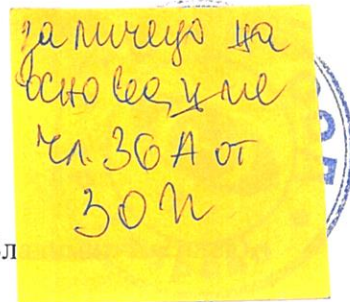 заличено на
основание
чл. 36А от
ЗОП